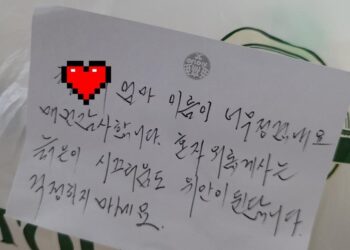 엄마 이름이 너무정겹네요
매번감사합니다. 혼자 외롭게사는
늙은이 시끄러움도 위안이된답니다.
걱정하지 마세요.